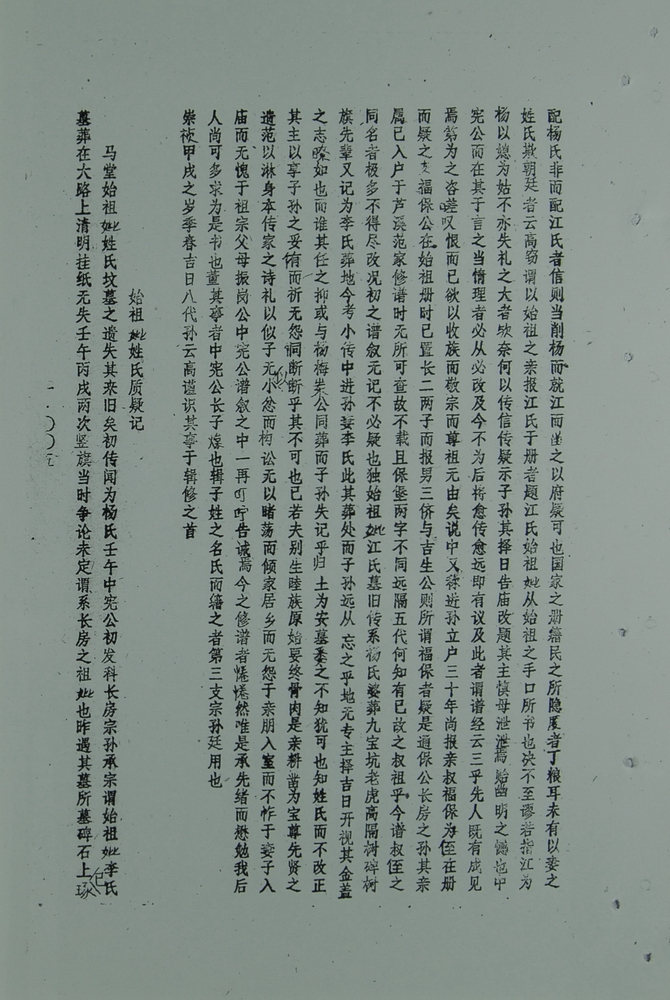 配杨氏非而配江氏者信则当削杨而就江而函之以府疑可也国家之册籍民之所隐匿者丁粮耳未有以妾之
姓氏欺朝廷者云高窃谓以始祖之亲报江氏于册者题江氏始祖妣从始祖之手口所书也决不至谬若指江为
杨以媳为姑不亦失礼之大者欤奈何以传信传疑示子孙其择日告庙改题其主慎毋泄泄焉贻幽明之憾也中
宪公而在其于言之当情理者必从必改及今不为后将愈传愈远即有议及此者谓谱经云三乎先人既有成见
焉第为之咨嗟叹恨而已欲以收族而敬宗而尊祖无由矣说中又称进孙立户三十年尚报亲叔福保为侄在册
而疑之支福保公在始祖册时已置长二两子而报男三侨与吉生公则所谓福保者疑是通保公长房之孙其亲
属已入户于芦溪范家修谱时无所可查故不载且保堡两字不同远隔五代何知有已故之叔祖乎今谱叔侄之
同名者极多不得尽改况初之谱叙无记不必疑也独始祖妣江氏墓旧传系杨氏婆葬九宝坑老虎高隔树碑树
旗先辈又记为李氏葬地今考小传中进孙娶李氏此其葬处而子孙远从 忘之乎地元专主择吉日开视其金盖
之志瞭如也而谁其任之抑或与杨梅岽公同葬而子孙失记乎归土为安墓袤之不知犹可也知姓氏而不改正
其主以享子孙之妥侑而祈无怨恫断断乎其不可也已若夫别生睦族原始要终骨肉是亲耕凿为宝尊先贤之
遗范以淋身本传家之诗礼以似子无小忿而构讼无以睹荡而倾家居乡而无怨于亲朋入室而不怍于妻子入
庙而无愧于祖宗父母振岗公中宪公谱叙之中一再叮咛告诫焉今之修谱者惓惓然唯是承先绪而懋勉我后
人尚可多求为是书也董其事者中宪公长子煌也辑子姓之名氏而籍之者第三支宗孙廷用也
崇祯甲戌之岁季春吉日八代孙云高谨识其事于辑修之首
始祖妣姓氏质疑记
马堂始祖妣姓氏坟墓之遗失其来旧矣初传闻为杨氏壬午中宪公初发科长房宗孙承宗谓始祖妣李氏
墓葬在大路上清明挂纸无失壬午丙戌两次竖旗当时争论未定谓系长房之祖妣也昨遇其墓所墓碑石上琢
一〇〇五